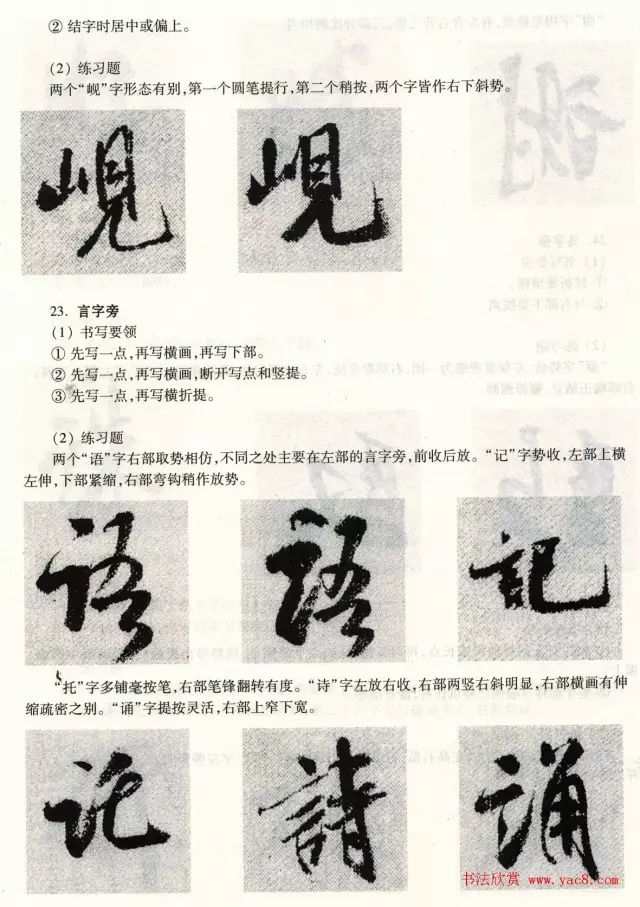 ② 结字时居中或偏上。
(2) 练习题
两个“岘”字形态有别,第一个圆笔提行,第二个稍按,两个字皆作右下斜势。
峴 峴
23. 言字旁
(1) 书写要领
① 先写一点,再写横画,再写下部。
② 先写一点,再写横画,断开写点和竖提。
③ 先写一点,再写横折提。
(2) 练习题
两个“语”字右部取势相仿,不同之处主要在左部的言字旁,前收后放。“记”字势收,左部上横
左伸,下部紧缩,右部弯钩稍作放势。
语 语 記
“托”字多铺毫按笔,右部笔锋翻转有度。“诗”字左放右收,右部两竖右斜明显,右部横画有伸
缩疏密之别。“诵”字提按灵活,右部上窄下宽。
託 詩 誦
书法欣赏 www.yac8.com